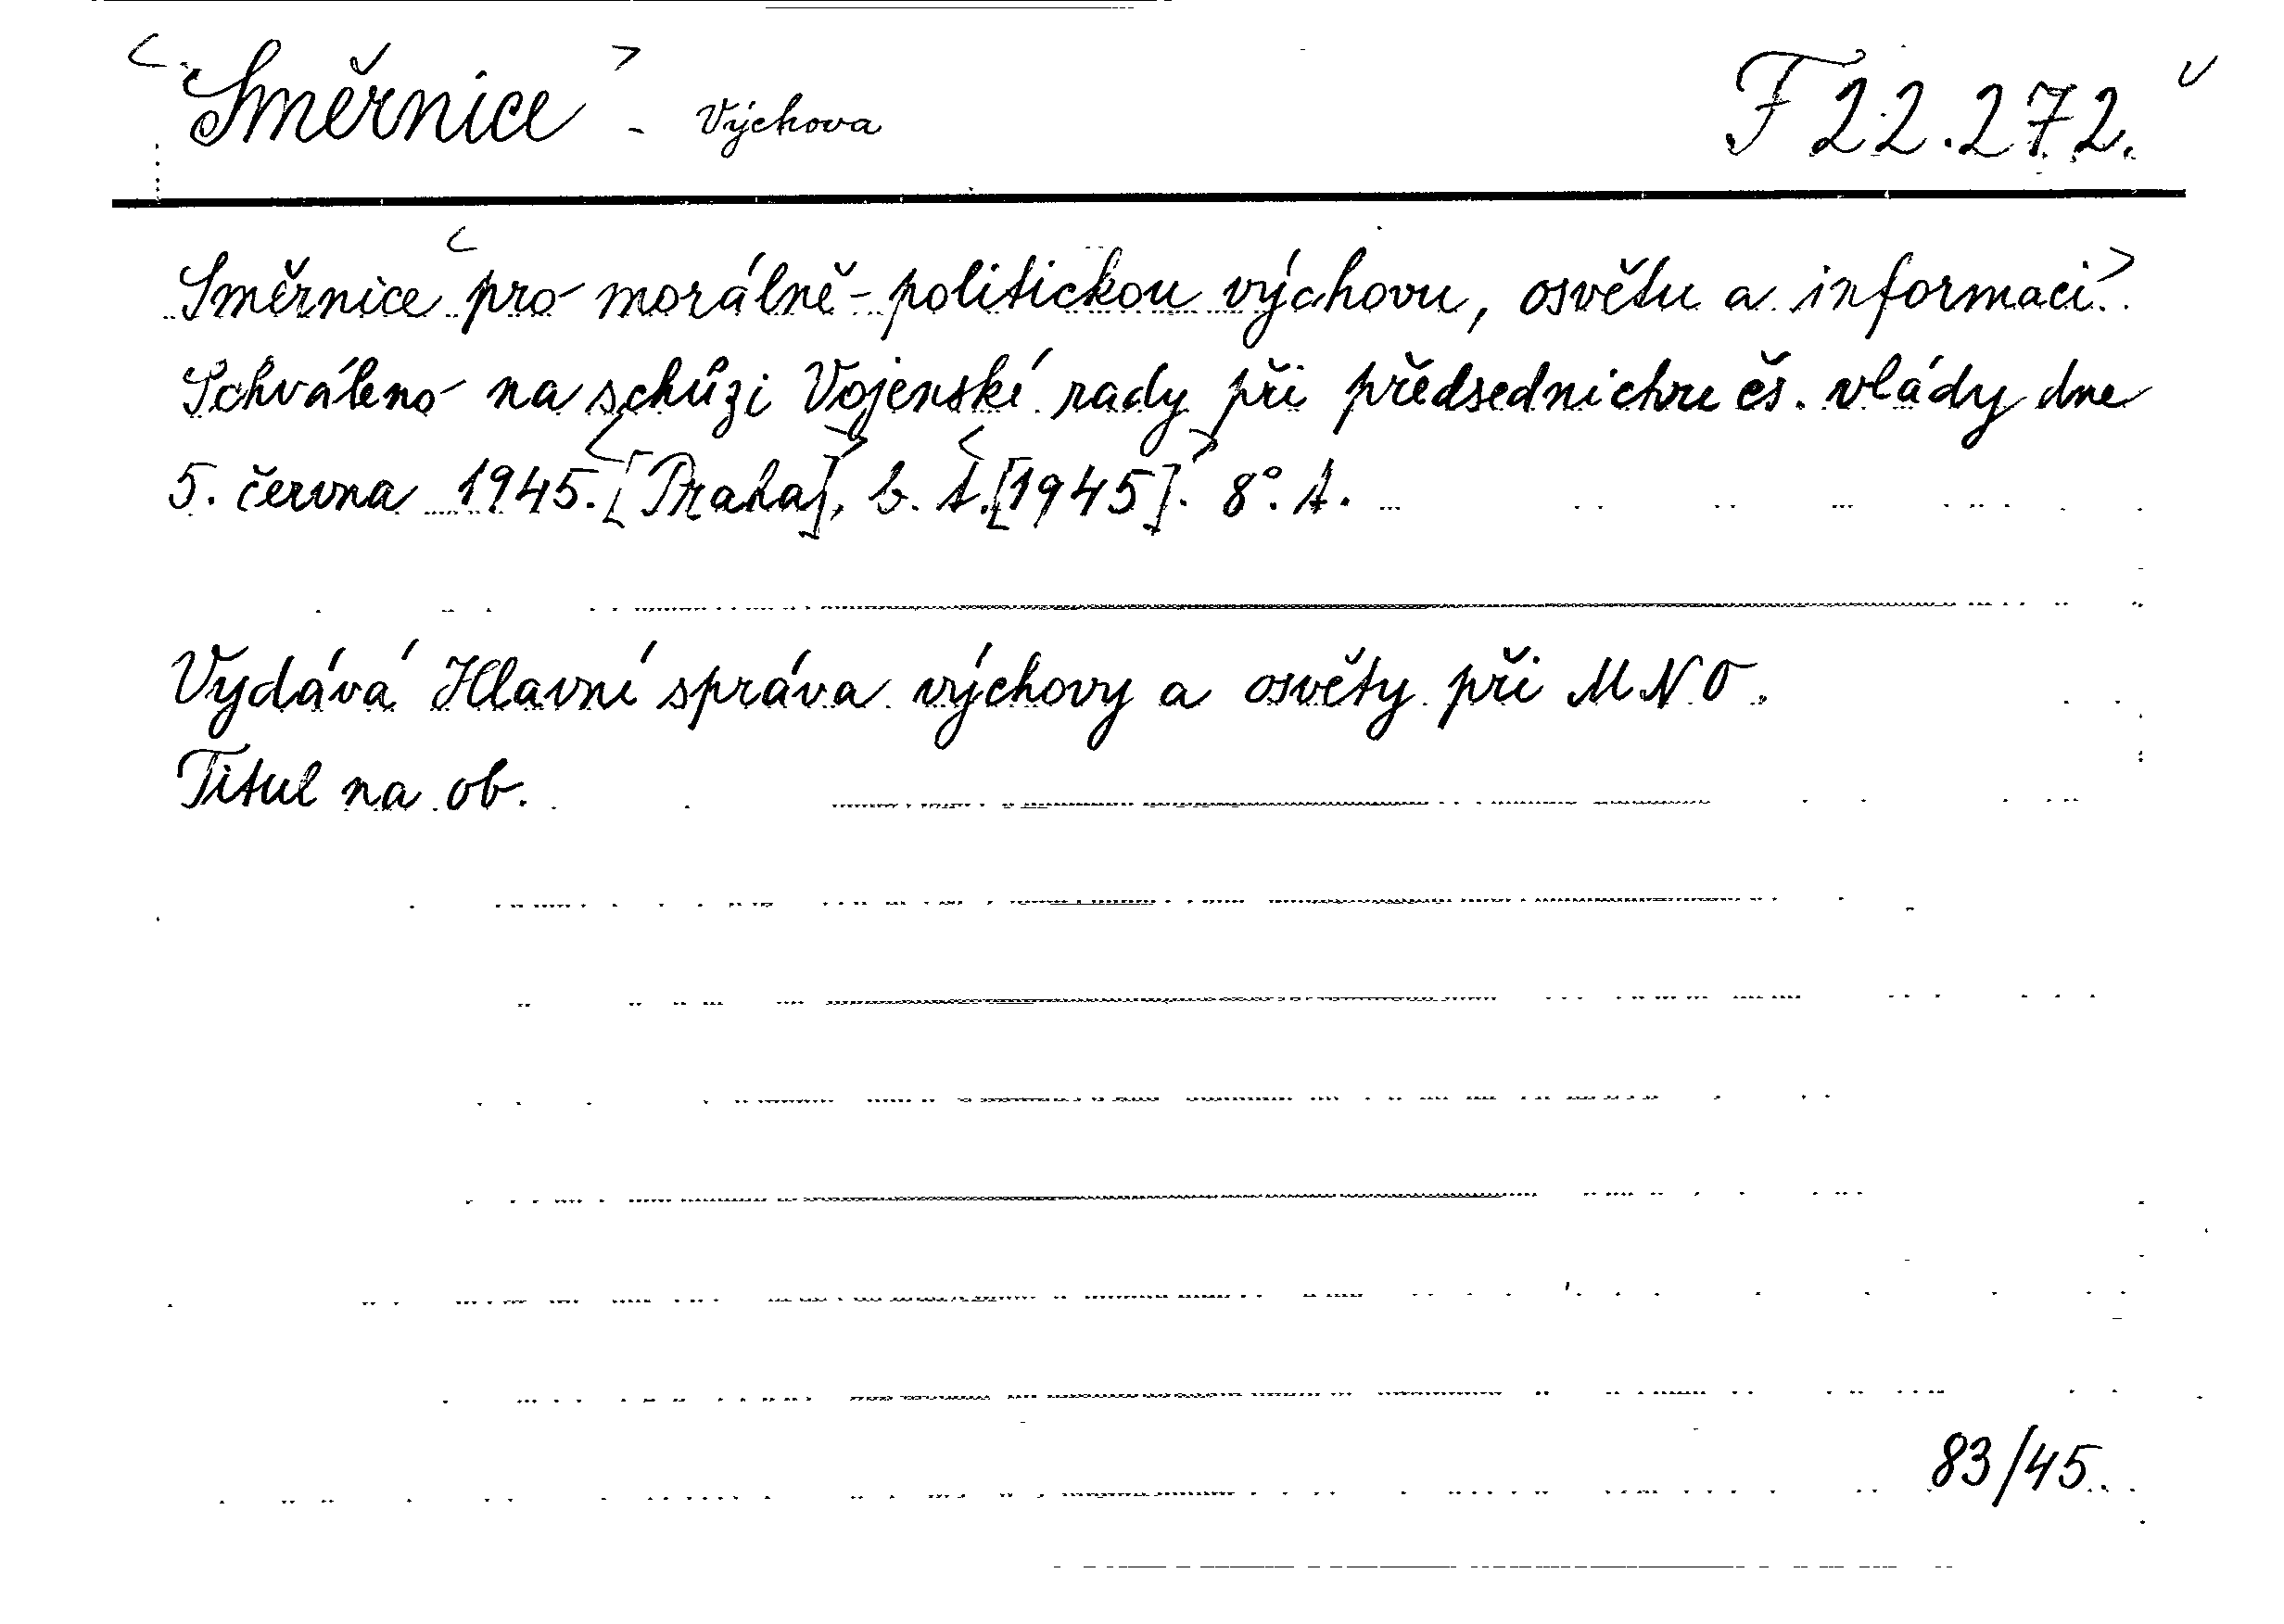 <Směrnice> - Výchova F 22.272.
Směrnice <pro morálně-politickou výchovu, osvětu a informaci>.
Schváleno na schůzi Vojenské rady při předsednictvu čs. vlády dne
5. června 1945. <[Praha]>, b. t. <[1945]>. 8°. A.
Vydává Hlavní správa výchovy a osvěty při MNO.
Titul na ob.
83/45.